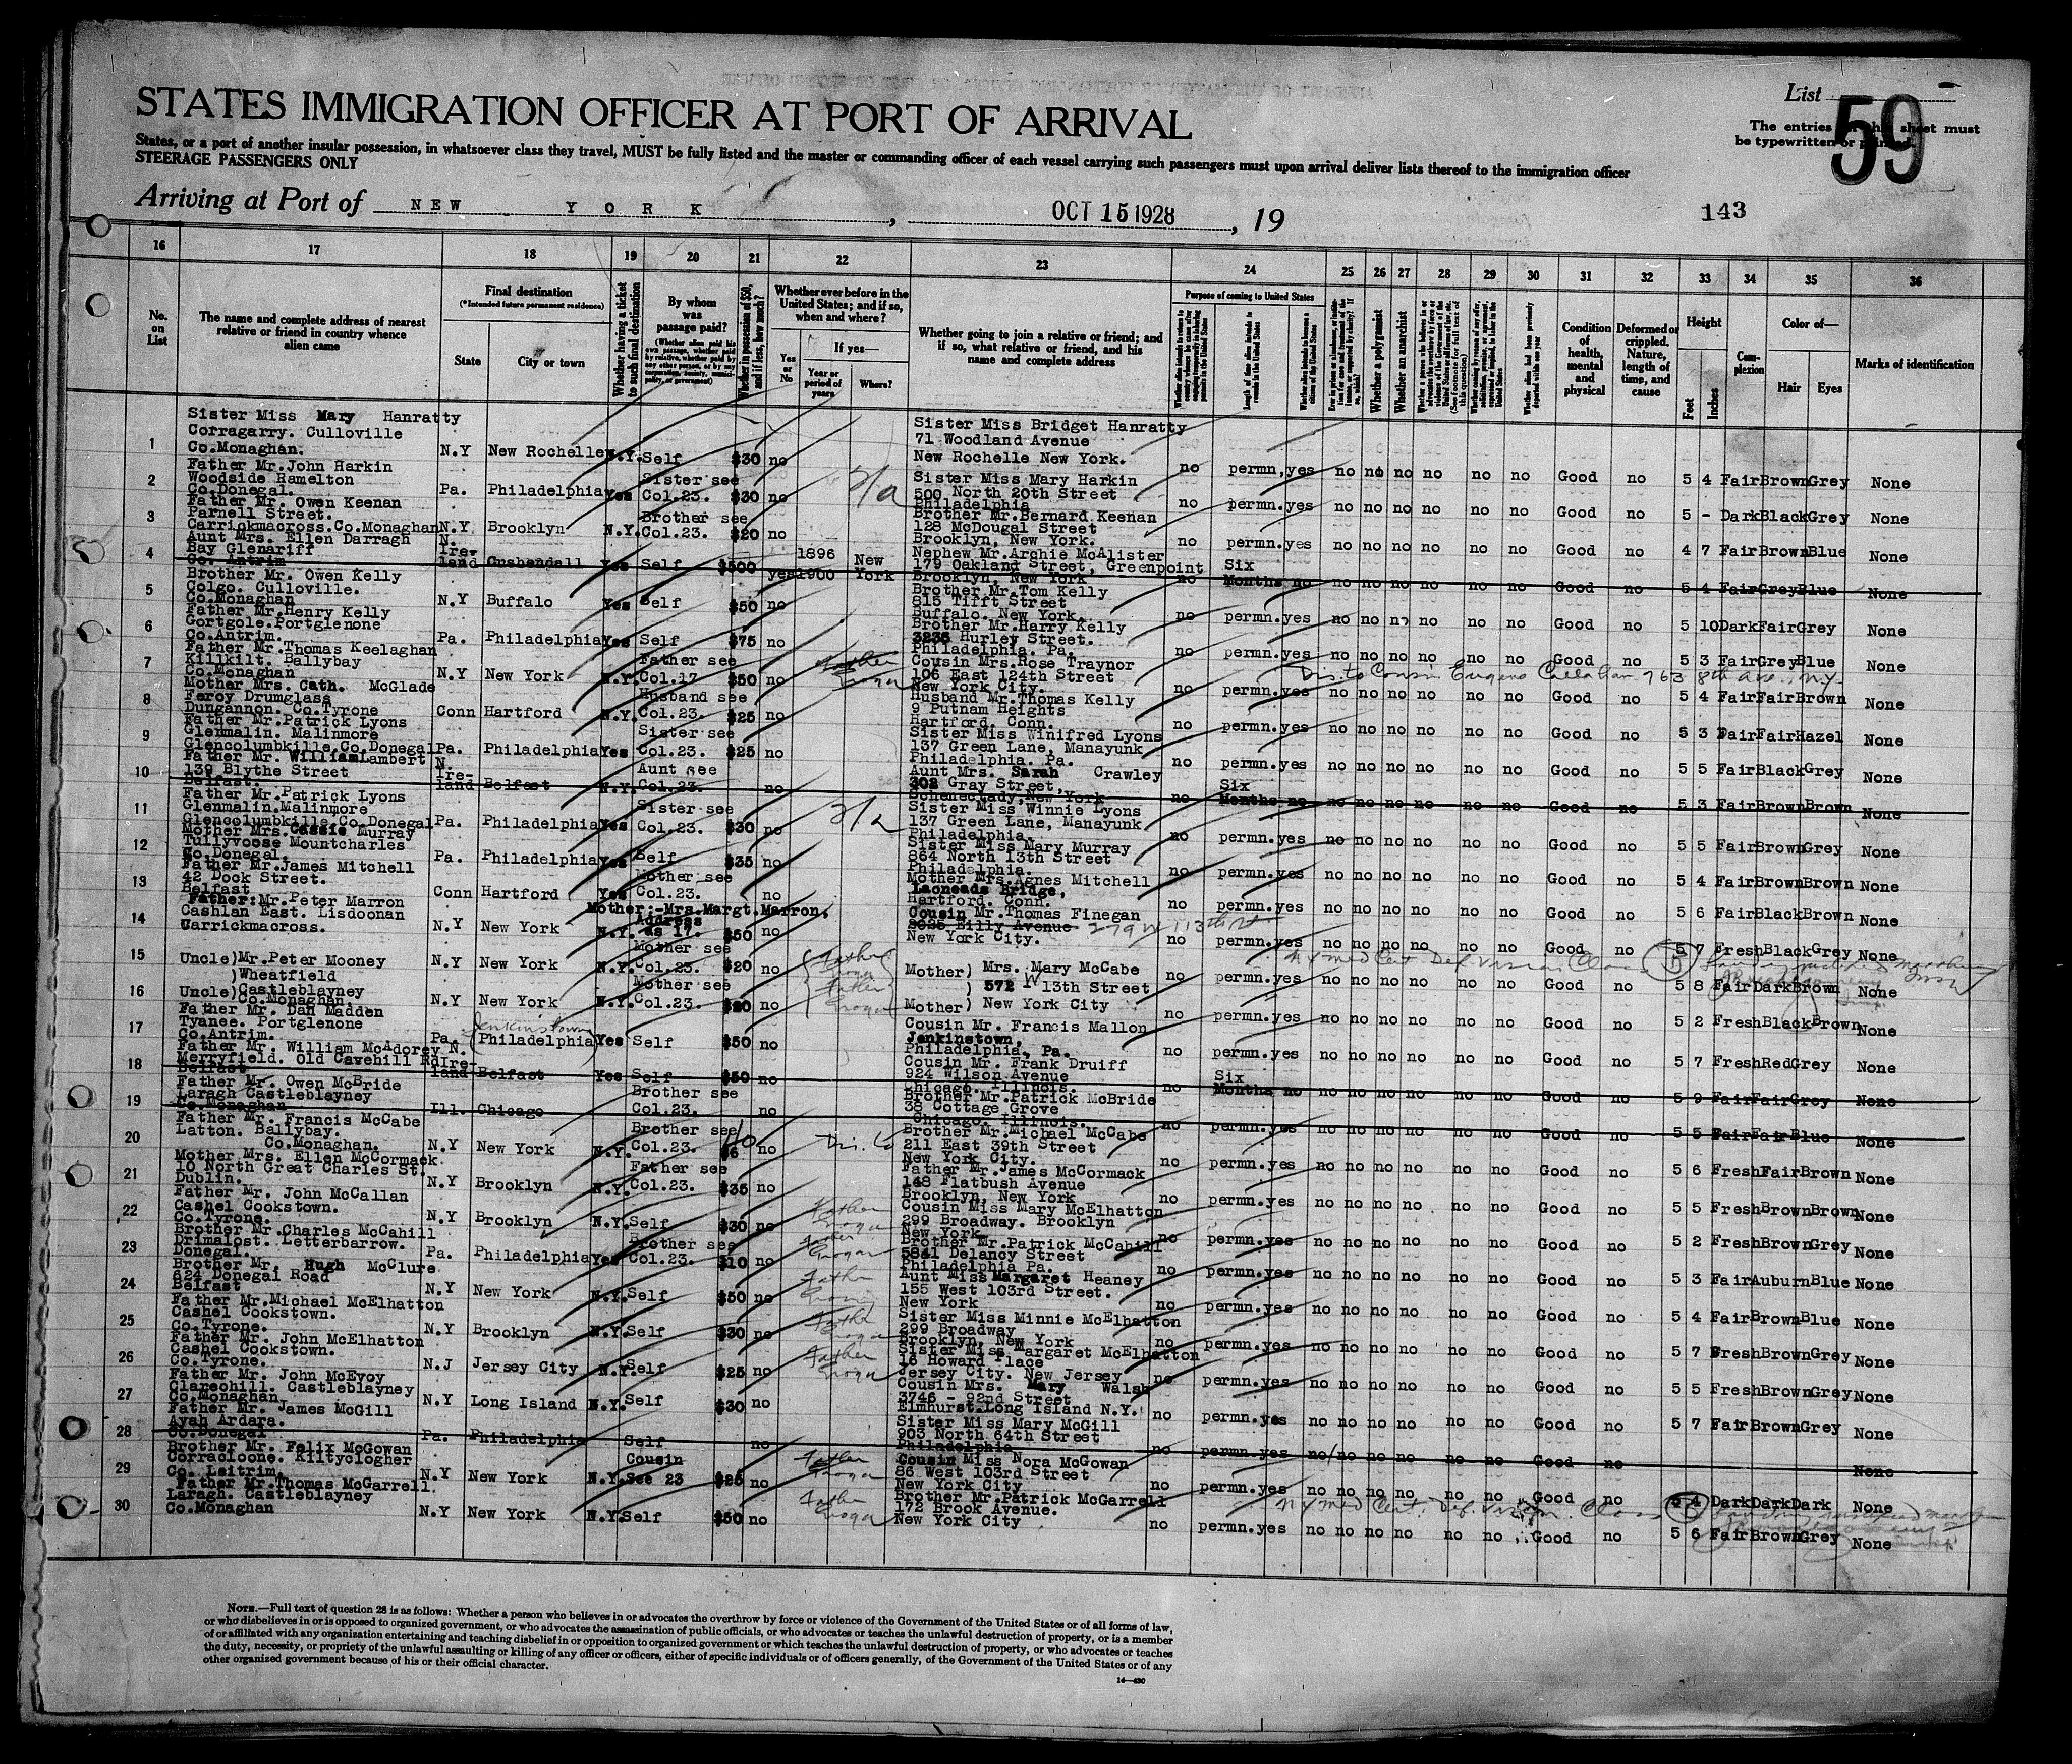 List
59
The entries on this sheet must
be typewritten or printed.
STATES IMMIGRATION OFFICER AT PORT OF ARRIVAL
States, or a port of another insular possession, in whatsoever class they travel, MUST be fully listed and the master or commanding officer of each vessel carrying such passengers must upon arrival deliver lists thereof to the immigration officer
STEERAGE PASSENGERS ONLY
Arriving at Port of NEW YORK, OCT 15 1928, 19
143
16 17 18 19 20 21 22 23 24 25 26 27 28 29 30 31 32 33 34 35 36
No. on List
The name and complete address of nearest relative or friend in country whence alien came
Final destination
(*Intended future permanent residence)
State
City or town
Whether having a ticket to such final destination
By whom was passage paid?
(Whether alien paid his own passage, whether paid by relative, whether paid by any other person, or by any corporation, society, municipality, or government)
Whether in possession of $50, and if less, how much?
Whether ever before in the United States; and if so, when and where?
Yes or No
If yes—
Year or period of years
Where?
Whether going to join a relative or friend; and if so, what relative or friend, and his name and complete address
Purpose of coming to United States
Length of time intends to remain in the United States
Whether a polygamist
Whether an anarchist
Condition of health, mental and physical
Deformed or crippled. Nature, length of time, and cause
Height
Feet
Inches
Complexion
Color of—
Hair
Eyes
Marks of identification
1 Sister Miss Mary Hanratty
Corragarry. Culloville
Co.Monaghan.
N.Y New Rochelle N.Y. Self $30 no
Sister Miss Bridget Hanratty
71 Woodland Avenue
New Rochelle New York.
no permn. yes no no no no no no Good no 5 4 Fair Brown Grey None
2 Father Mr.John Harkin
Woodside Ramelton
Co.Donegal.
Pa. Philadelphia Yes Sister see Col.23. $30 no
Sister Miss Mary Harkin
500 North 20th Street
Philadelphia
no permn.yes no no no no no no Good no 5 - Dark Black Grey None
3 Father Mr. Owen Keenan
Parnell Street.
Carrickmacross.Co.Monaghan
N.Y. Brooklyn N.Y. Brother see Col.23. $20 no
Brother Mr.Bernard Keenan
128 McDougal Street
Brooklyn, New York.
no permn.yes no no no no no no Good no 4 7 Fair Brown Blue None
4 Aunt Mrs. Ellen Darragh
Bay Glenariff
Co. Antrim
N. Ireland Cushendall Yes Self $500 yes 1896 1900 New York
Nephew Mr.Archie McAlister
179 Oakland Street, Greenpoint
Brooklyn, New York
no Six Months no no no no no no no Good no 5 4 Fair Grey Blue None
5 Brother Mr. Owen Kelly
Colgo. Culloville.
Co.Monaghan
N.Y Buffalo Yes Self $50 no
Brother Mr.Tom Kelly
815 Tifft Street
Buffalo. New York.
no permn.yes no no no no no no Good no 5 10 Dark Fair Grey None
6 Father Mr.Henry Kelly
Gortgole.Portglenone
Co.Antrim.
Pa. Philadelphia Yes Self $75 no
Brother Mr.Harry Kelly
3236 Hurley Street.
Philadelphia. Pa.
no permn.yes no no no no no no Good no 5 3 Fair Grey Blue None
7 Father Mr.Thomas Keelaghan
Killkilt. Ballybay
Co.Monaghan
N.Y New York N.Y. Father see Col.17 $50 no
Cousin Mrs.Rose Traynor
106 East 124th Street
New York City.
Dis. to Cousin Eugene Callahan 763 8th Ave., N.Y.
no permn.yes no no no no no no Good no 5 4 Fair Fair Brown None
8 Mother Mrs. Cath. McGlade
Feroy Drumglass
Dungannon. Co.Tyrone
Conn Hartford N.Y. Husband see Col.23. $25 no
Husband Mr.Thomas Kelly
9 Putnam Heights
Hartford. Conn.
no permn.yes no no no no no no Good no 5 3 Fair Fair Hazel None
9 Father Mr.Patrick Lyons
Glenmalin. Malinmore
Glencolumbkille.Co.Donegal
Pa. Philadelphia Yes Sister see Col.23. $25 no
Sister Miss Winifred Lyons
137 Green Lane, Manayunk
Philadelphia. Pa.
no permn.yes no no no no no no Good no 5 5 Fair Black Grey None
10 Father Mr. William Lambert
139 Blythe Street
Belfast.
N. Ireland Belfast N.Y. Aunt see Col.23. no
Aunt Mrs. Sarah Crawley
302 Gray Street,
Schenectady,New York
no Six Months no no no no no no no Good no 5 3 Fair Brown Brown None
11 Father Mr.Patrick Lyons
Glenmalin.Malinmore
Glencolumbkille.Co.Donegal
Pa. Philadelphia Yes Sister see Col.23. $30 no
Sister Miss Winnie Lyons
137 Green Lane, Manayunk
Philadelphia.
no permn.yes no no no no no no Good no 5 5 Fair Brown Grey None
12 Mother Mrs.Cassie Murray
Tullyvoose Mountcharles
Co.Donegal.
Pa. Philadelphia Yes Self $35 no
Sister Miss Mary Murray
864 North 13th Street
Philadelphia.
no permn.yes no no no no no no Good no 5 4 Fair Brown Brown None
13 Father Mr.James Mitchell
42 Dock Street.
Belfast
Conn Hartford Yes Mother see Col.23. no
Mother Mrs.Agnes Mitchell
Laoneads Bridge,
Hartford. Conn.
no permn.yes no no no no no no Good no 5 6 Fair Black Brown None
14 Father:Mr.Peter Marron
Cashlan East. Lisdoonan
Carrickmacross.
N.Y New York N.Y. Mother:-Mrs.Margt.Marron. Address as 17. $50 no
Cousin Mr.Thomas Finegan
279 W 113th St
New York City.
no permn.yes no no no no no no Good no 5 7 Fresh Black Grey None
15 Uncle)Mr.Peter Mooney
)Wheatfield
N.Y New York N.Y. Mother see Col.23. $20 no
Mother) Mrs. Mary McCabe
) 572 W 13th Street
NY Med Cert Def. Vision Class
no permn.yes no no no no no no Good no 5 8 Fair Dark Brown None
16 Uncle)Castleblayney
Co.Monaghan.
N.Y New York N.Y. Mother see Col.23. $20 no
Mother) New York City
no permn.yes no no no no no no Good no 5 2 Fresh Black Brown None
17 Father Mr. Dan Madden
Tyanee. Portglenone
Co.Antrim.
Pa. Jenkinstown (Philadelphia) Yes Self $50 no
Cousin Mr. Francis Mallon
Jenkinstown,
Philadelphia, Pa.
no permn.yes no no no no no no Good no 5 7 Fresh Red Grey None
18 Father Mr. William McAdorey
Merryfield. Old Cavehill Rd
Belfast
N. Ireland Belfast Yes Self $50 no
Cousin Mr. Frank Druiff
924 Wilson Avenue
Chicago. Illinois.
no Six Months no no no no no no no Good no 5 9 Fair Fair Grey None
19 Father Mr. Owen McBride
Laragh Castleblayney
Co.Monaghan
Ill. Chicago Brother see Col.23. no
Brother Mr.Patrick McBride
38 Cottage Grove
Chicago. Illinois.
no permn.yes no no no no no no Good no 5 5 Fair Fair Blue None
20 Father Mr. Francis McCabe
Latton. Ballybay.
Co.Monaghan.
N.Y New York N.Y. Brother see Col.23. $6 no
Brother Mr.Michael McCabe
211 East 39th Street
New York City.
no permn.yes no no no no no no Good no 5 6 Fresh Fair Brown None
21 Mother Mrs. Ellen McCormack.
10 North Great Charles St.
Dublin.
N.Y Brooklyn N.Y. Father see Col.23. $35 no
Father Mr.James McCormack
148 Flatbush Avenue
Brooklyn, New York
no permn.yes no no no no no no Good no 5 5 Fresh Brown Brown None
22 Father Mr. John McCallan
Cashel Cookstown.
Co.Tyrone.
N.Y Brooklyn N.Y. Self $30 no
Cousin Miss Mary McElhatton
299 Broadway. Brooklyn
New York.
no permn.yes no no no no no no Good no 5 2 Fresh Brown Grey None
23 Brother Mr.Charles McCahill
Drimalost. Letterbarrow.
Donegal.
Pa. Philadelphia Yes Brother see Col.23. $10 no
Brother Mr.Patrick McCahill
5841 Delancy Street
Philadelphia Pa.
no permn.yes no no no no no no Good no 5 3 Fair Auburn Blue None
24 Brother Mr. Hugh McClure
624 Donegal Road
Belfast
N.Y New York N.Y. Self $50 no
Aunt Miss Margaret Heaney
155 West 103rd Street.
New York
no permn.yes no no no no no no Good no 5 4 Fair Brown Blue None
25 Father Mr.Michael McElhatton
Cashel Cookstown.
Co.Tyrone.
N.Y Brooklyn N.Y. Self $30 no
Sister Miss Minnie McElhatton
299 Broadway
Brooklyn, New York
no permn.yes no no no no no no Good no 5 7 Fresh Brown Grey None
26 Father Mr. John McElhatton
Cashel Cookstown.
Co.Tyrone.
N.J Jersey City N.Y. Self $25 no
Sister Miss Margaret McElhatton
16 Howard Place
Jersey City. New Jersey
no permn.yes no no no no no no Good no 5 5 Fresh Brown Grey None
27 Father Mr. John McEvoy
Clareohill. Castleblayney
Co.Monaghan.
N.Y Long Island N.Y. Self $30 no
Cousin Mrs. Mary Walsh
3746 - 92nd Street
Elmhurst.Long Island N.Y.
no permn.yes no no no no no no Good no 5 7 Fair Brown Grey None
28 Father Mr. James McGill
Ayah Ardara.
Co.Donegal
Pa. Philadelphia Self no
Sister Miss Mary McGill
903 North 64th Street
Philadelphia
no permn.yes no no no no no no Good no None
29 Brother Mr. Felix McGowan
Corracloone. Kiltyclogher
Co. Leitrim.
N.Y New York N.Y. Cousin See 23 $25 no
Cousin Miss Nora McGowan
86 West 103rd Street
New York City
no permn.yes no no no no no no Good no 5 4 Dark Dark Dark None
30 Father Mr.Thomas McGarrell
Laragh. Castleblayney
Co.Monaghan
N.Y New York N.Y. Self $50 no
Brother Mr.Patrick McGarrell
172 Brook Avenue.
New York City
NY Med Cert. Def. Vision. Class
no permn.yes no no no no no no Good no 5 6 Fair Brown Grey None
NOTE.—Full text of question 28 is as follows: Whether a person who believes in or advocates the overthrow by force or violence of the Government of the United States or of all forms of law,
or who disbelieves in or is opposed to organized government, or who advocates the assassination of public officials, or who advocates or teaches the unlawful destruction of property, or is a member
of or affiliated with any organization entertaining and teaching disbelief in or opposition to organized government or which teaches the unlawful destruction of property, or who advocates or teaches
the duty, necessity, or propriety of the unlawful assaulting or killing of any officer or officers, either of specific individuals or of officers generally, of the Government of the United States or of any
other organized government because of his or their official character.
14—430